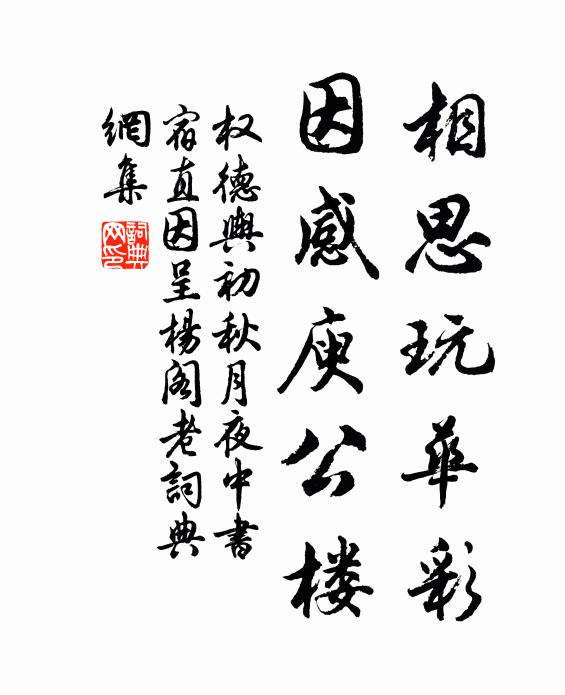 相思玩华彩
因感庾公楼
权德舆初秋月夜中书
宿直因呈杨阁老词典
网集
词典网印